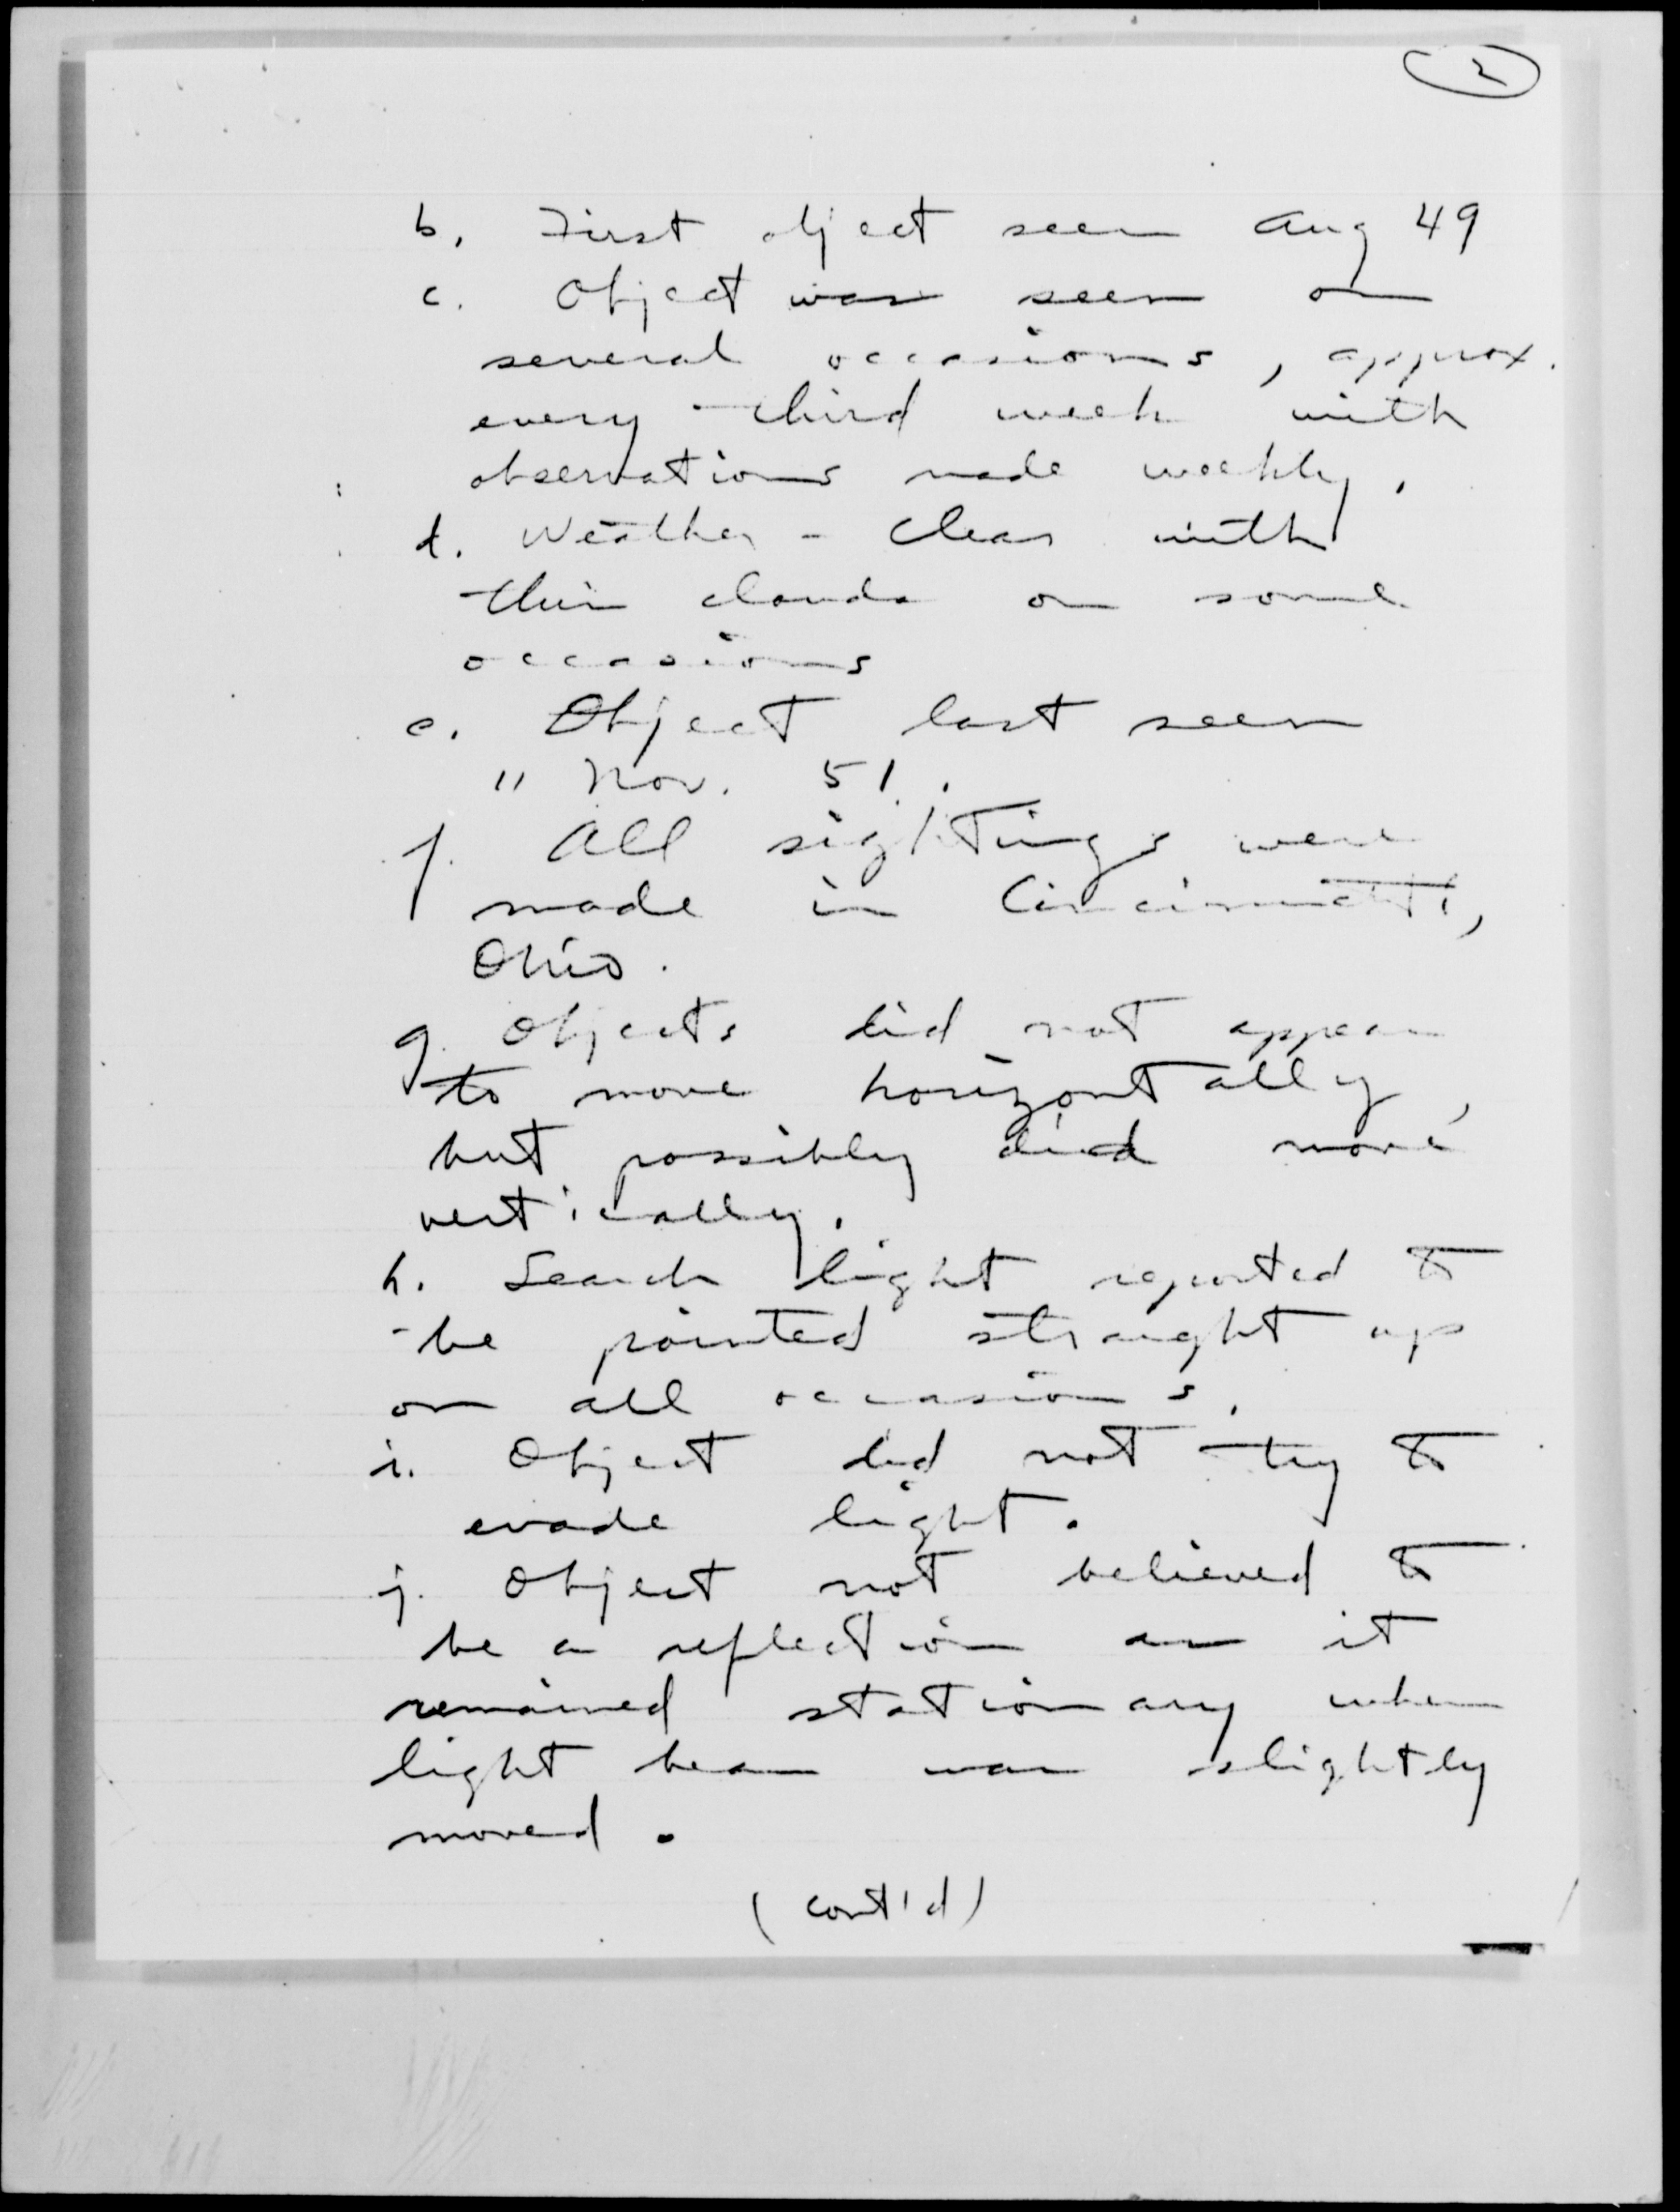 2
b. First object seen Aug 49
c. Object was seen on
several occasions, approx.
every third week with
observations made weekly.
d. Weather - Clear with
thin clouds on some
occasions
e. Object last seen
11 Nov. 51.
f. All sightings were
made in Cincinnati,
Ohio.
g. Objects did not appear
to move horizontally,
but possibly did move
vertically.
h. Search light reported to
be pointed straight up
on all occasions.
i. Object did not try to
evade light.
j. Object not believed to
be a reflection as it
remained stationary when
light beam was slightly
moved.
(cont'd)